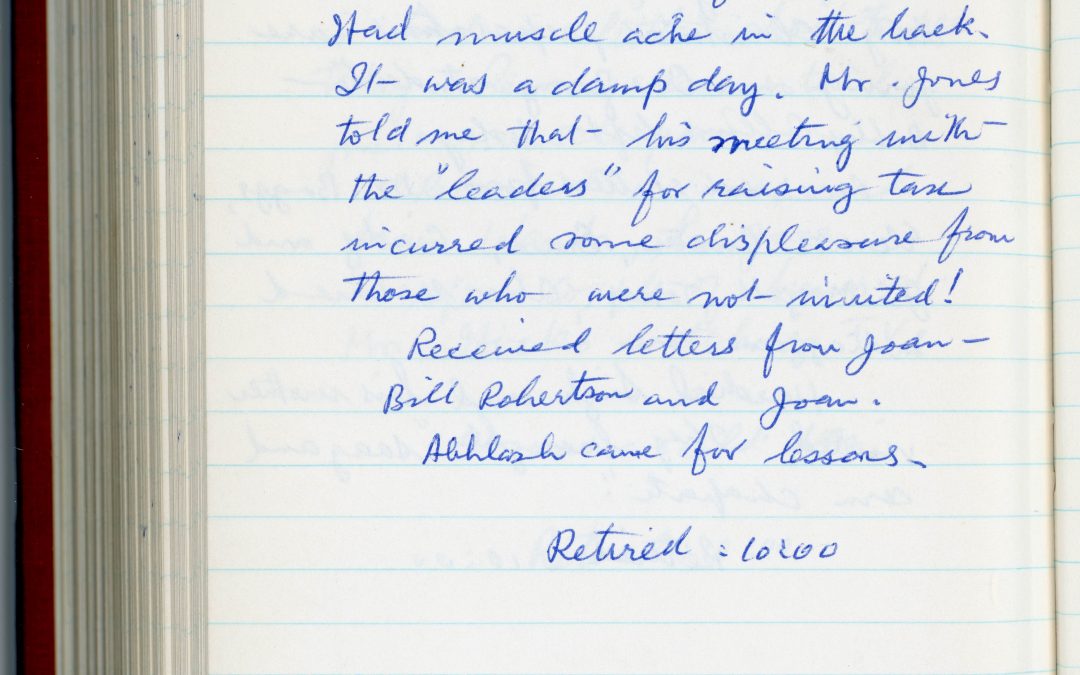 Had muscle ache in the back.
It was a damp day. Mr. Jones
told me that his meeting with
the "leaders" for raising tax
incurred some displeasure from
those who were not invited!
Received letters from Joan –
Bill Robertson and Joan.
came for lessons.
Retired : 10:00